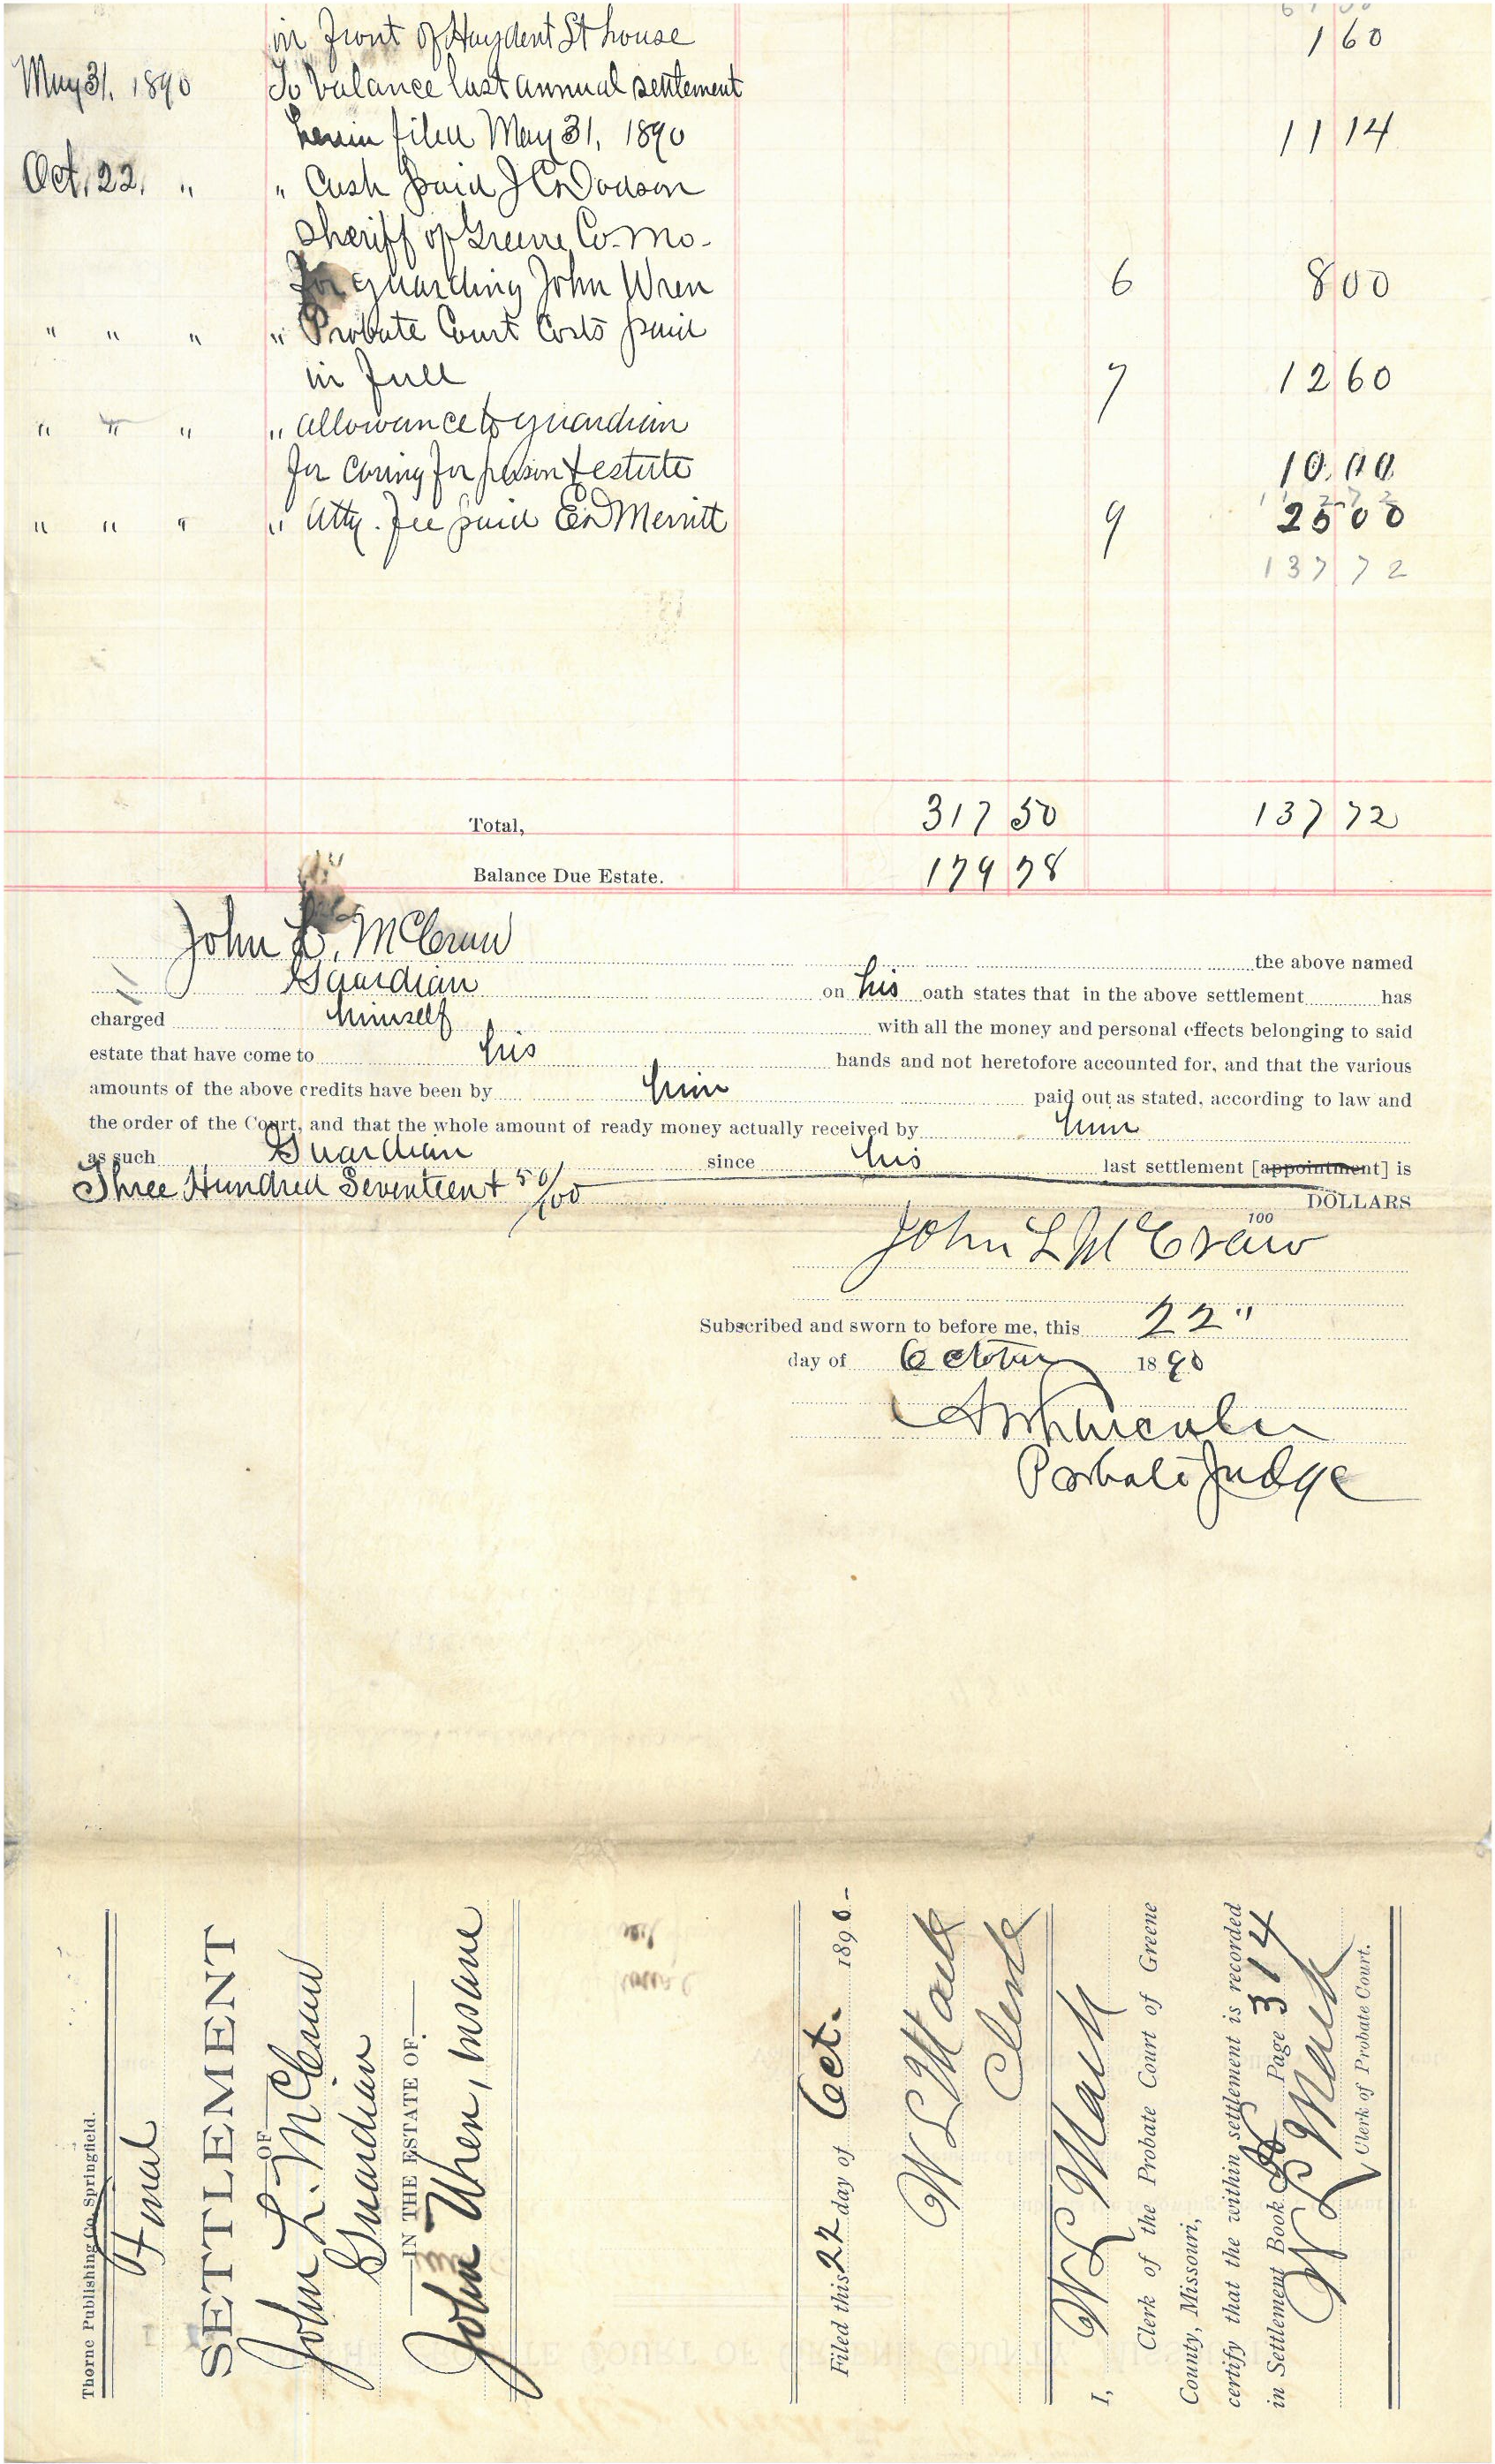 in front of Hayden St house 1 60
May 31, 1890 To balance last annual settlement
herein filed May 31, 1890 11 14
Oct. 22, " " Cash paid J C Dodson
Sheriff of Greene Co. Mo.
for guarding John Wren 6 8 00
" " " " Probate Court Costs paid
in full 7 12 60
" " " " allowance to guardian
for caring for person & estate 10 00
" " " " Atty. Fee paid E D Merritt 9 25 00
137 72
Total, 317 50 137 72
Balance Due Estate. 179 78
John L. McCraw the above named
Guardian on his oath states that in the above settlement has
charged himself with all the money and personal effects belonging to said
estate that have come to his hands and not heretofore accounted for, and that the various
amounts of the above credits have been by him paid out as stated, according to law and
the order of the Court, and that the whole amount of ready money actually received by him
as such Guardian since his last settlement [appointment] is
Three Hundred Seventeen + 50/100 DOLLARS
100
John L McCraw
Subscribed and sworn to before me, this 22"
day of October 1890
Probate Judge
Thorne Publishing Co. Springfield.
Final
SETTLEMENT
OF
John L. McCraw
Guardian
IN THE ESTATE OF
John Wren, insane
Filed this 22 day of Oct. 1890-
W L Mack
Clerk
I, W L Mack
Clerk of the Probate Court of Greene
County, Missouri,
certify that the within settlement is recorded
in Settlement Book Page 314
W L Mack
Clerk of Probate Court.